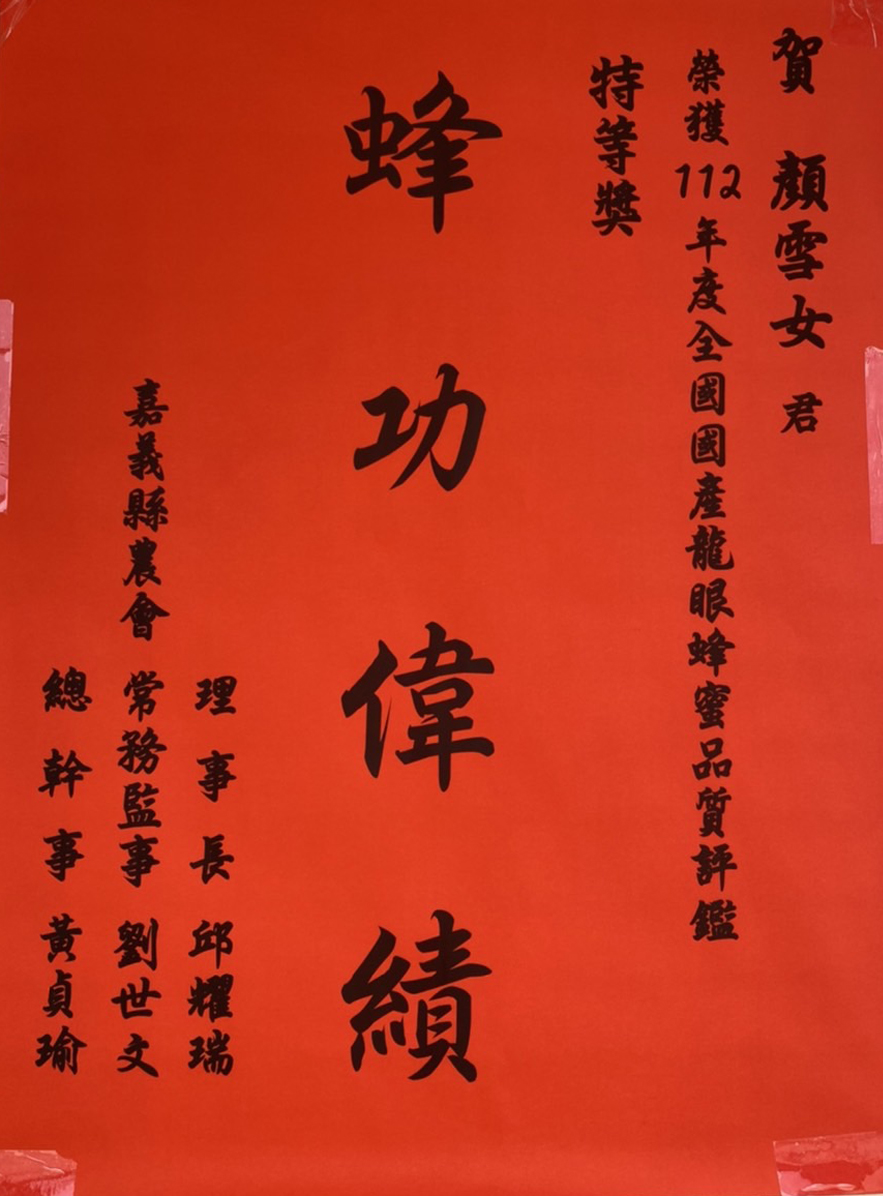 賀 顏雪女 君
榮獲112年度全國國產龍眼蜂蜜品質評鑑
特等獎
蜂功偉績
理事長 邱耀瑞
嘉義縣農會 常務監事 劉世文
總幹事 黃貞瑜